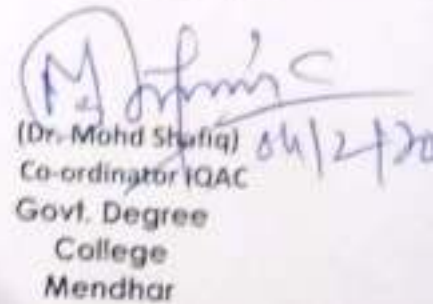 (Dr. Mohd Shafiq)
04/2/20
Co-ordinator IQAC
Govt. Degree
College
Mendhar